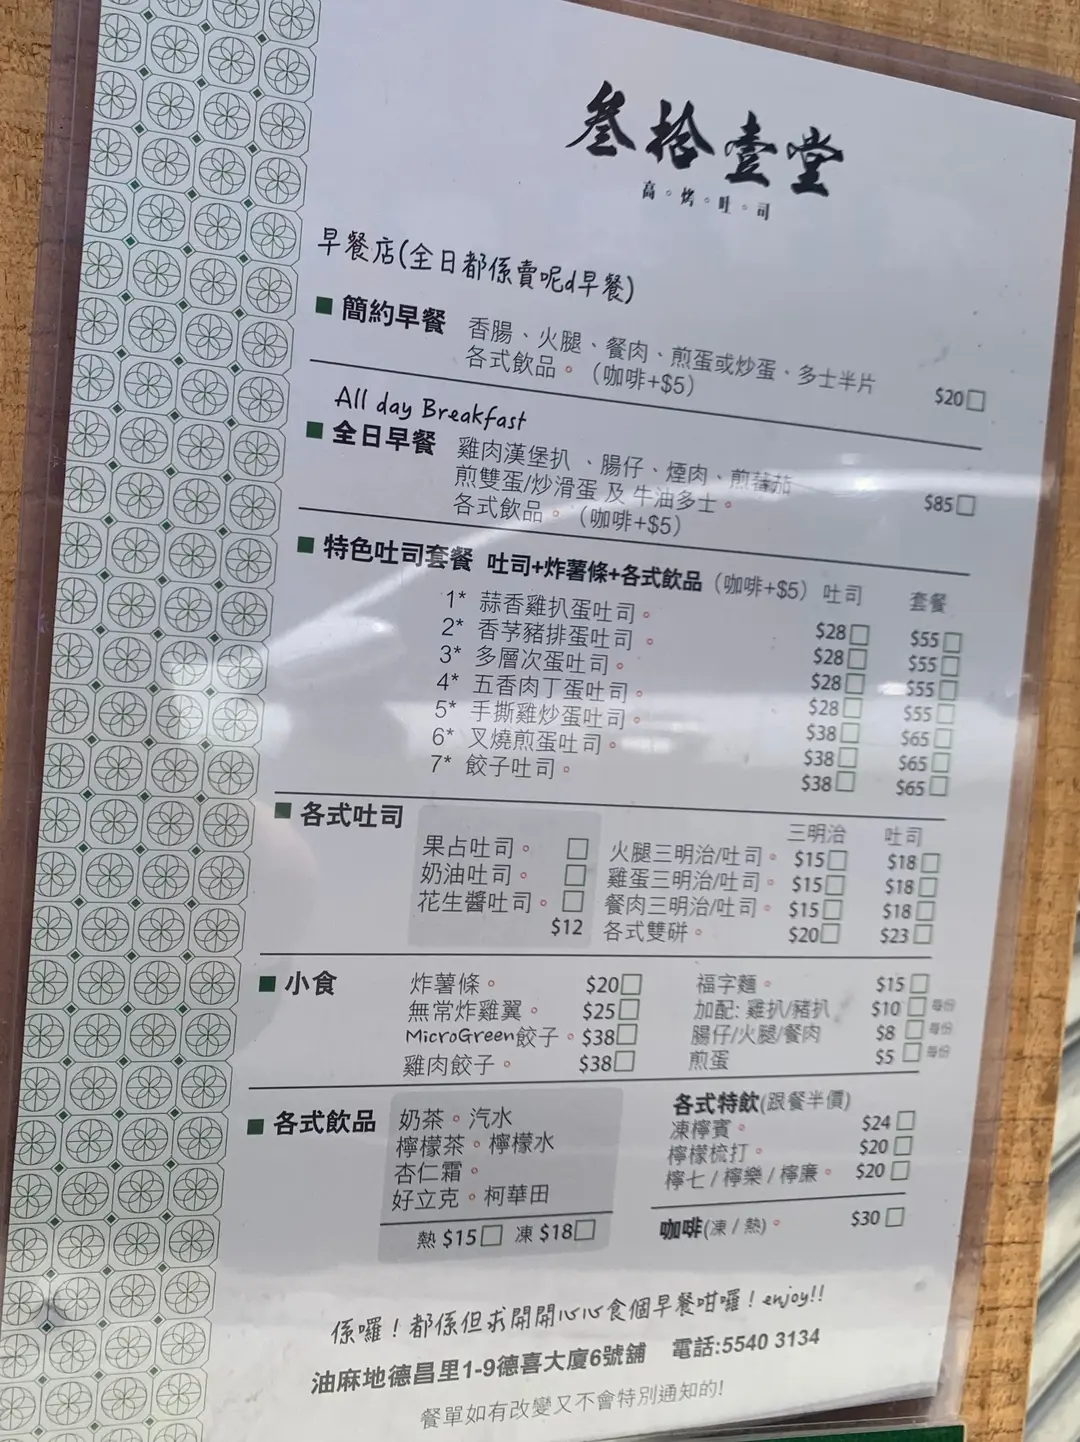 叁拾壹堂
高。烤。吐。司
早餐店(全日都係賣呢d早餐)
簡約早餐 香腸、火腿、餐肉、煎蛋或炒蛋、多士半片
各式飲品。(咖啡+$5) $20
All day Breakfast
全日早餐 雞肉漢堡扒、腸仔、煙肉、煎蕃茄
煎雙蛋/炒滑蛋 及 牛油多士。
各式飲品。(咖啡+$5) $85
特色吐司套餐 吐司+炸薯條+各式飲品(咖啡+$5) 吐司 套餐
1* 蒜香雞扒蛋吐司。 $28 $55
2* 香芧豬排蛋吐司。 $28 $55
3* 多層次蛋吐司。 $28 $55
4* 五香肉丁蛋吐司。 $28 $55
5* 手撕雞炒蛋吐司。 $38 $65
6* 叉燒煎蛋吐司。 $38 $65
7* 餃子吐司。 $38 $65
各式吐司 三明治 吐司
果占吐司。 火腿三明治/吐司。 $15 $18
奶油吐司。 雞蛋三明治/吐司。 $15 $18
花生醬吐司。 餐肉三明治/吐司。 $15 $18
$12 各式雙硑。 $20 $23
小食 炸薯條。 $20 福字麵。 $15
無常炸雞翼。 $25 加配: 雞扒/豬扒 $10 每份
MicroGreen餃子。 $38 腸仔/火腿/餐肉 $8 每份
雞肉餃子。 $38 煎蛋 $5 每份
各式飲品 奶茶。汽水
檸檬茶。檸檬水
杏仁霜。
好立克。柯華田
熱 $15 凍 $18
各式特飲(跟餐半價)
凍檸賓。 $24
檸檬梳打。 $20
檸七 / 檸樂 / 檸廉。 $20
咖啡(凍 / 熱)。 $30
係囉！都係但求開開心心食個早餐咁囉！enjoy!!
油麻地德昌里1-9德喜大廈6號舖 電話:5540 3134
餐單如有改變又不會特別通知的!